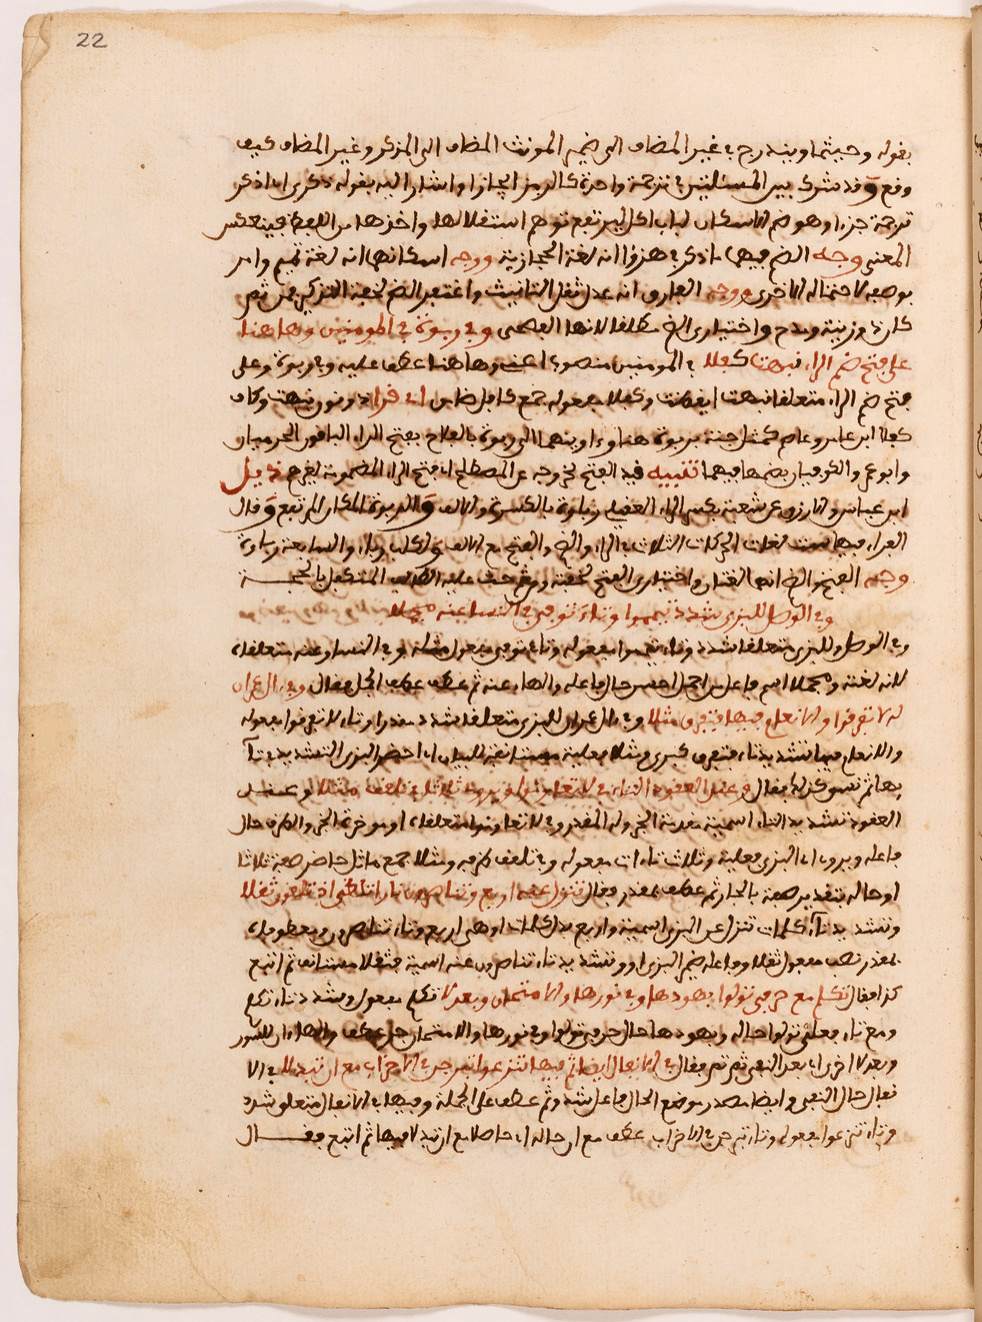 22
بقوله وحيثما ويندرج في غير المضاف الى ضمير المونث المضاف الى المذكر وغير المضاف كيف
وقع وقد شرك بين المسئلتين في ترجمة واحدة كالرمز ايجازا واشار اليه بقوله ذكرى اي اذكر
ترجمة جزءا وهو ضم الاسكان لباب اكل ليرتفع توهم استقلالها واخذها من اللفظ فينعكس
المعنى وجه الضم فيها ما ذكر في هزؤا انه لغة الحجازية ووجه اسكانها انه لغة تميم واسد
ووجه الفارق انه عدل ثقل التانيث واغتفر الضم لخفة التذكير فمن ثم
كان ذو زينة ومدح واختياري الضم مطلقا لانها الفصحى وفي ربوة في المومنين وهاهنا
على فتح ضم الراء نبهت كفلا في المومنين وهاهنا عطف عليه وفي ربوة وعلى
فتح ضم الراء متعلقا نبهت ايقظت وكفلا مفعوله جمع كافل ضامن اي قرا ذو نون نبهت وكاف
كفلا ابن عامر وعاصم كمثل جنة بربوة هنا وءاويناهما الى ربوة بالفلاح بفتح الراء الباقون الحرميان
وابو عمرو والكوفيان بضمها فيهما تنبيه قيد الفتح لخروجه عن المصطلح اي فتح الراء المضمومة ليخرج ذيل
ابن عباس والازرق عن شعبة بكسر الراء العقيلي رباوة بالكسرة والالف والربوة المكان المرتفع وقال
الفراء فيها سبع لغات الحركات الثلاث في الراء والضم والفتح مع الالف والسابعة رباوة
وجه الفتح والضم انهما لغتان واختياري الفتح لخفته
وفي الوصل للبزي شدد تيمموا وتاء توفى في النسا عنه مجملا
وفي الوصل وللبزي متعلقا شدد وتاء تيمموا مفعوله وتاء توفى مفعول مثله وفي النسا وعنه متعلقاه
لانه لغته ومجملا اسم فاعل من اجمل احسن حال فاعله والهاء عنه ثم عطف عطف الجمل فقال وفي ءال عمران
له لا تفرقوا والانعام فيها فتفرق مثلا وفي ءال عمران للبزي متعلقا شدد مقدرا وتاء لا تفرقوا مفعوله
والانعام فيها تشديد تاء فتفرق كبرى ومثلا فعلية مستانفة للبيان اي احضر البزي التشديد تا
وعند العقود التاء في لا تعاونوا ويروى ثلاثا في تلقف مثلا وعند
العقود تشديد التاء اسمية مقدمة الخبر وله المقدر وفي لا تعاونوا متعلقاه او موخرة الخبر والظرف حال
فاعله ويروى اي البزي فعلية وثلاث تاءات مفعوله وفي تلقف ظرفه ومثلا جمع ماثل حاضر صفة ثلاثا
او حاله بتقدير صفة بالحاء ثم عطف بمقدر فقال تنزل عنه اربع وتناصرون نارا تلظى اذ تلقون ثقلا
وتشديد تاء كلمات تنزل عن البزي اسمية واربع بدل كلمات او هي اربع وتاء تناصرون ومعطوفاه
بمقدر نصب مفعول ثقلا وفاعله ضمير البزي او وتشديد تاء تناصرون عنه اسمية فثقلا مستانف ثم اتبع
كذا فقال تكلم مع حرفي تولوا بهودها وفي نورها والامتحان وبعد لا تكلم مفعول شدد تاء تكلم
ومع تاء فعلي تولوا حاله وبهودها حال حرفي تولوا وفي نورها والامتحان عطف والهاءان للسور
وبعد لا اخرى اي بعد النفي ثم تمم فقال في الانفال ايضا ثم فيها تنازعوا تبرجن في الاحزاب مع ان تبدلا في الا
نفال حال النفي وايضا مصدر موضع الحال فاعل شدد ثم عطف على الجملة وفيها اي الانفال متعلق شدد
وتاء تنازعوا مفعوله وتاء تبرجن في الاحزاب عطف مع ان حاله اي حاصلا مع ان تبدلا فيها ثم اتبع فقال